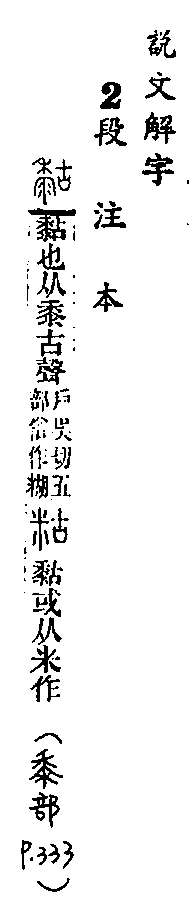 説文解字
2段注本
䵒黏也从黍古聲戶吳切五部俗作糊䵒或从米作（黍部P.333）